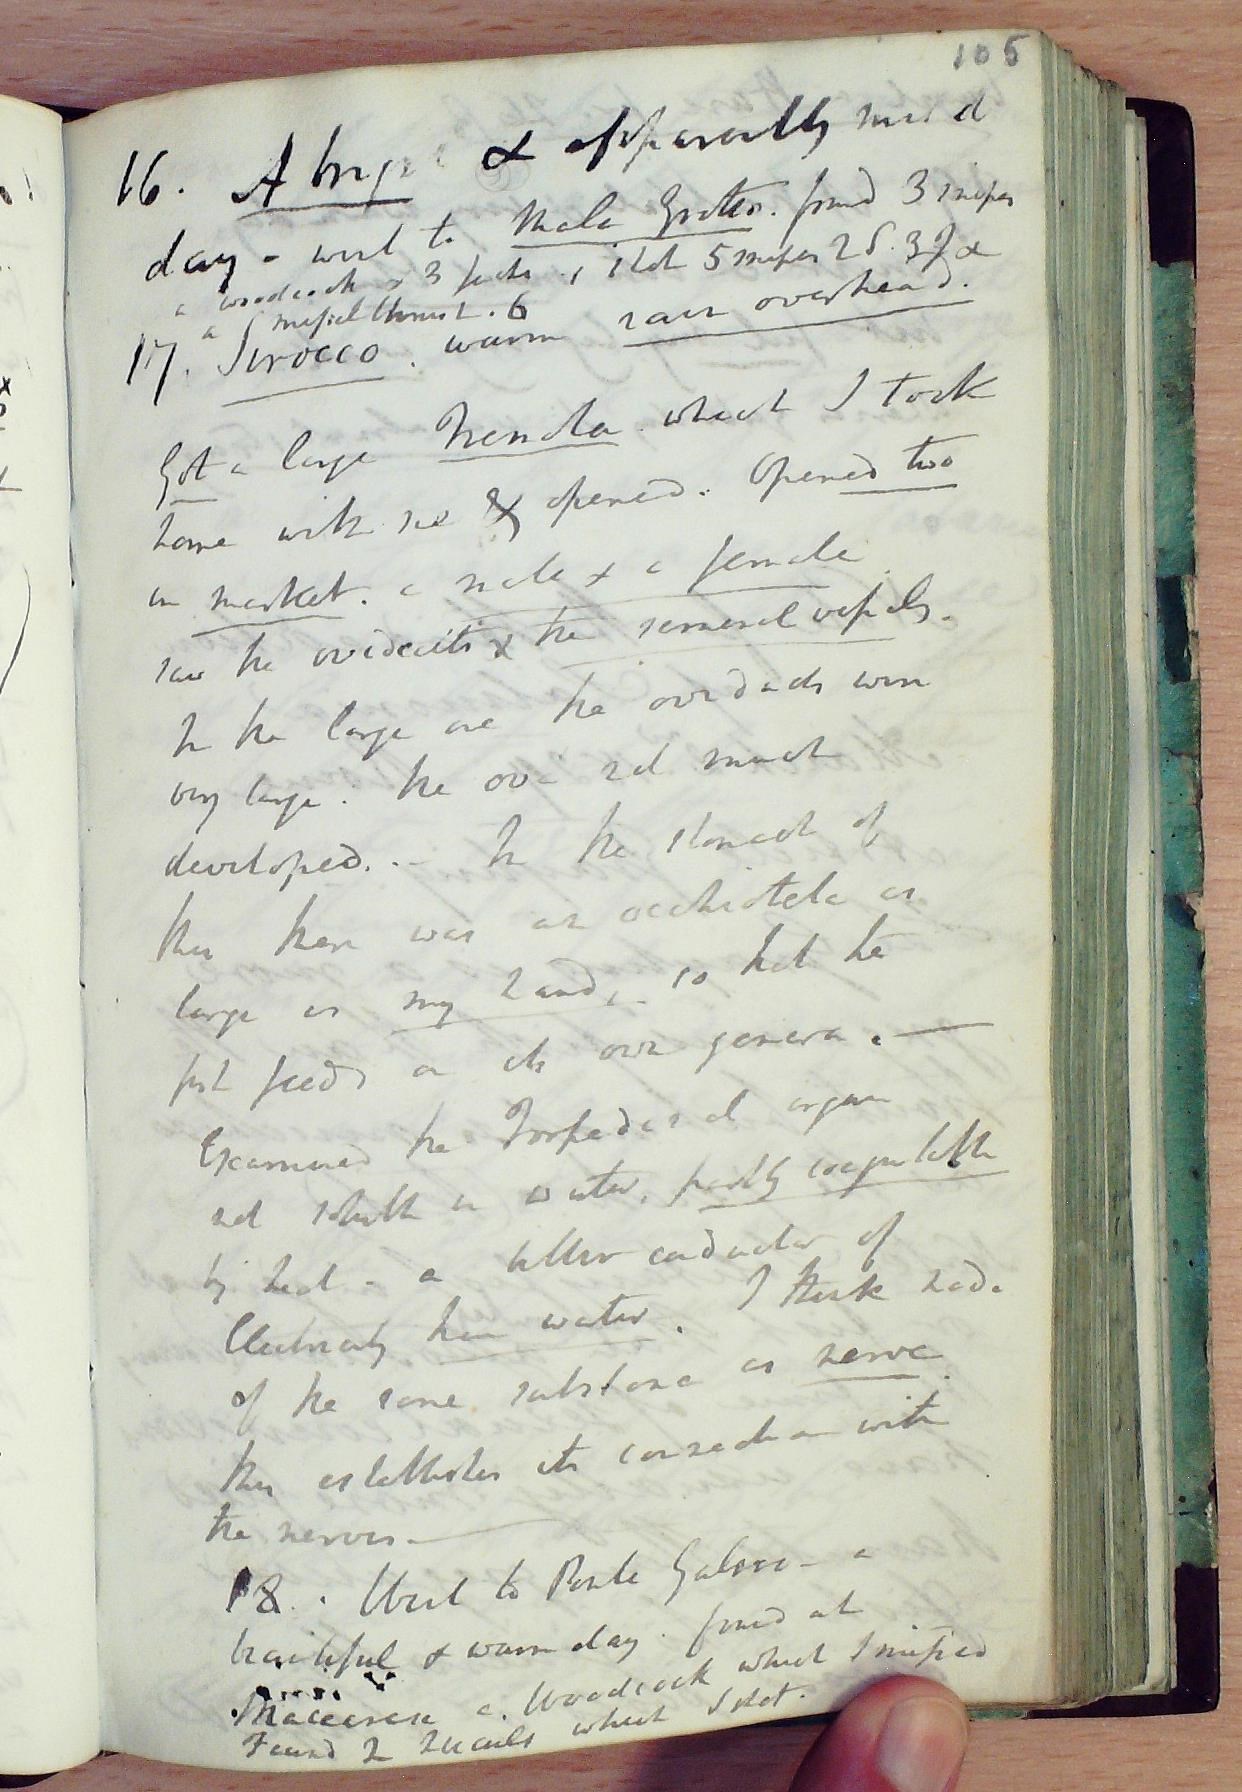 105
16. A bright & apparently mild
day - went to Mala Grotta. found 3 snipes
a woodcock & 3 , shot 5 snipes 2 S. 3 J &
a missel thrush. 6
17. Sirocco. warm rain overhead.
Got a large Tremola which I took
home with me & opened. Opened two
in market. a male & a female.
saw the oviducts & the seminal vessels.
In the large one the oviducts were
very large. the ova not much
developed. - In the stomach of
this there was an occhiatela as
large as my hand, - so that the
fish feeds on its own genera. —
Examined the Torpedinal organ
not soluble in water, partly coagulable
by heat - a better conductor of
Electricity than water. I think made
of the same substance as nerve.
this establishes its connection with
the nerves. —
18. Went to Ponte Galera - a
beautiful & warm day. found at
Maccarese a Woodcock which I missed
Found 2 Quails which I shot.